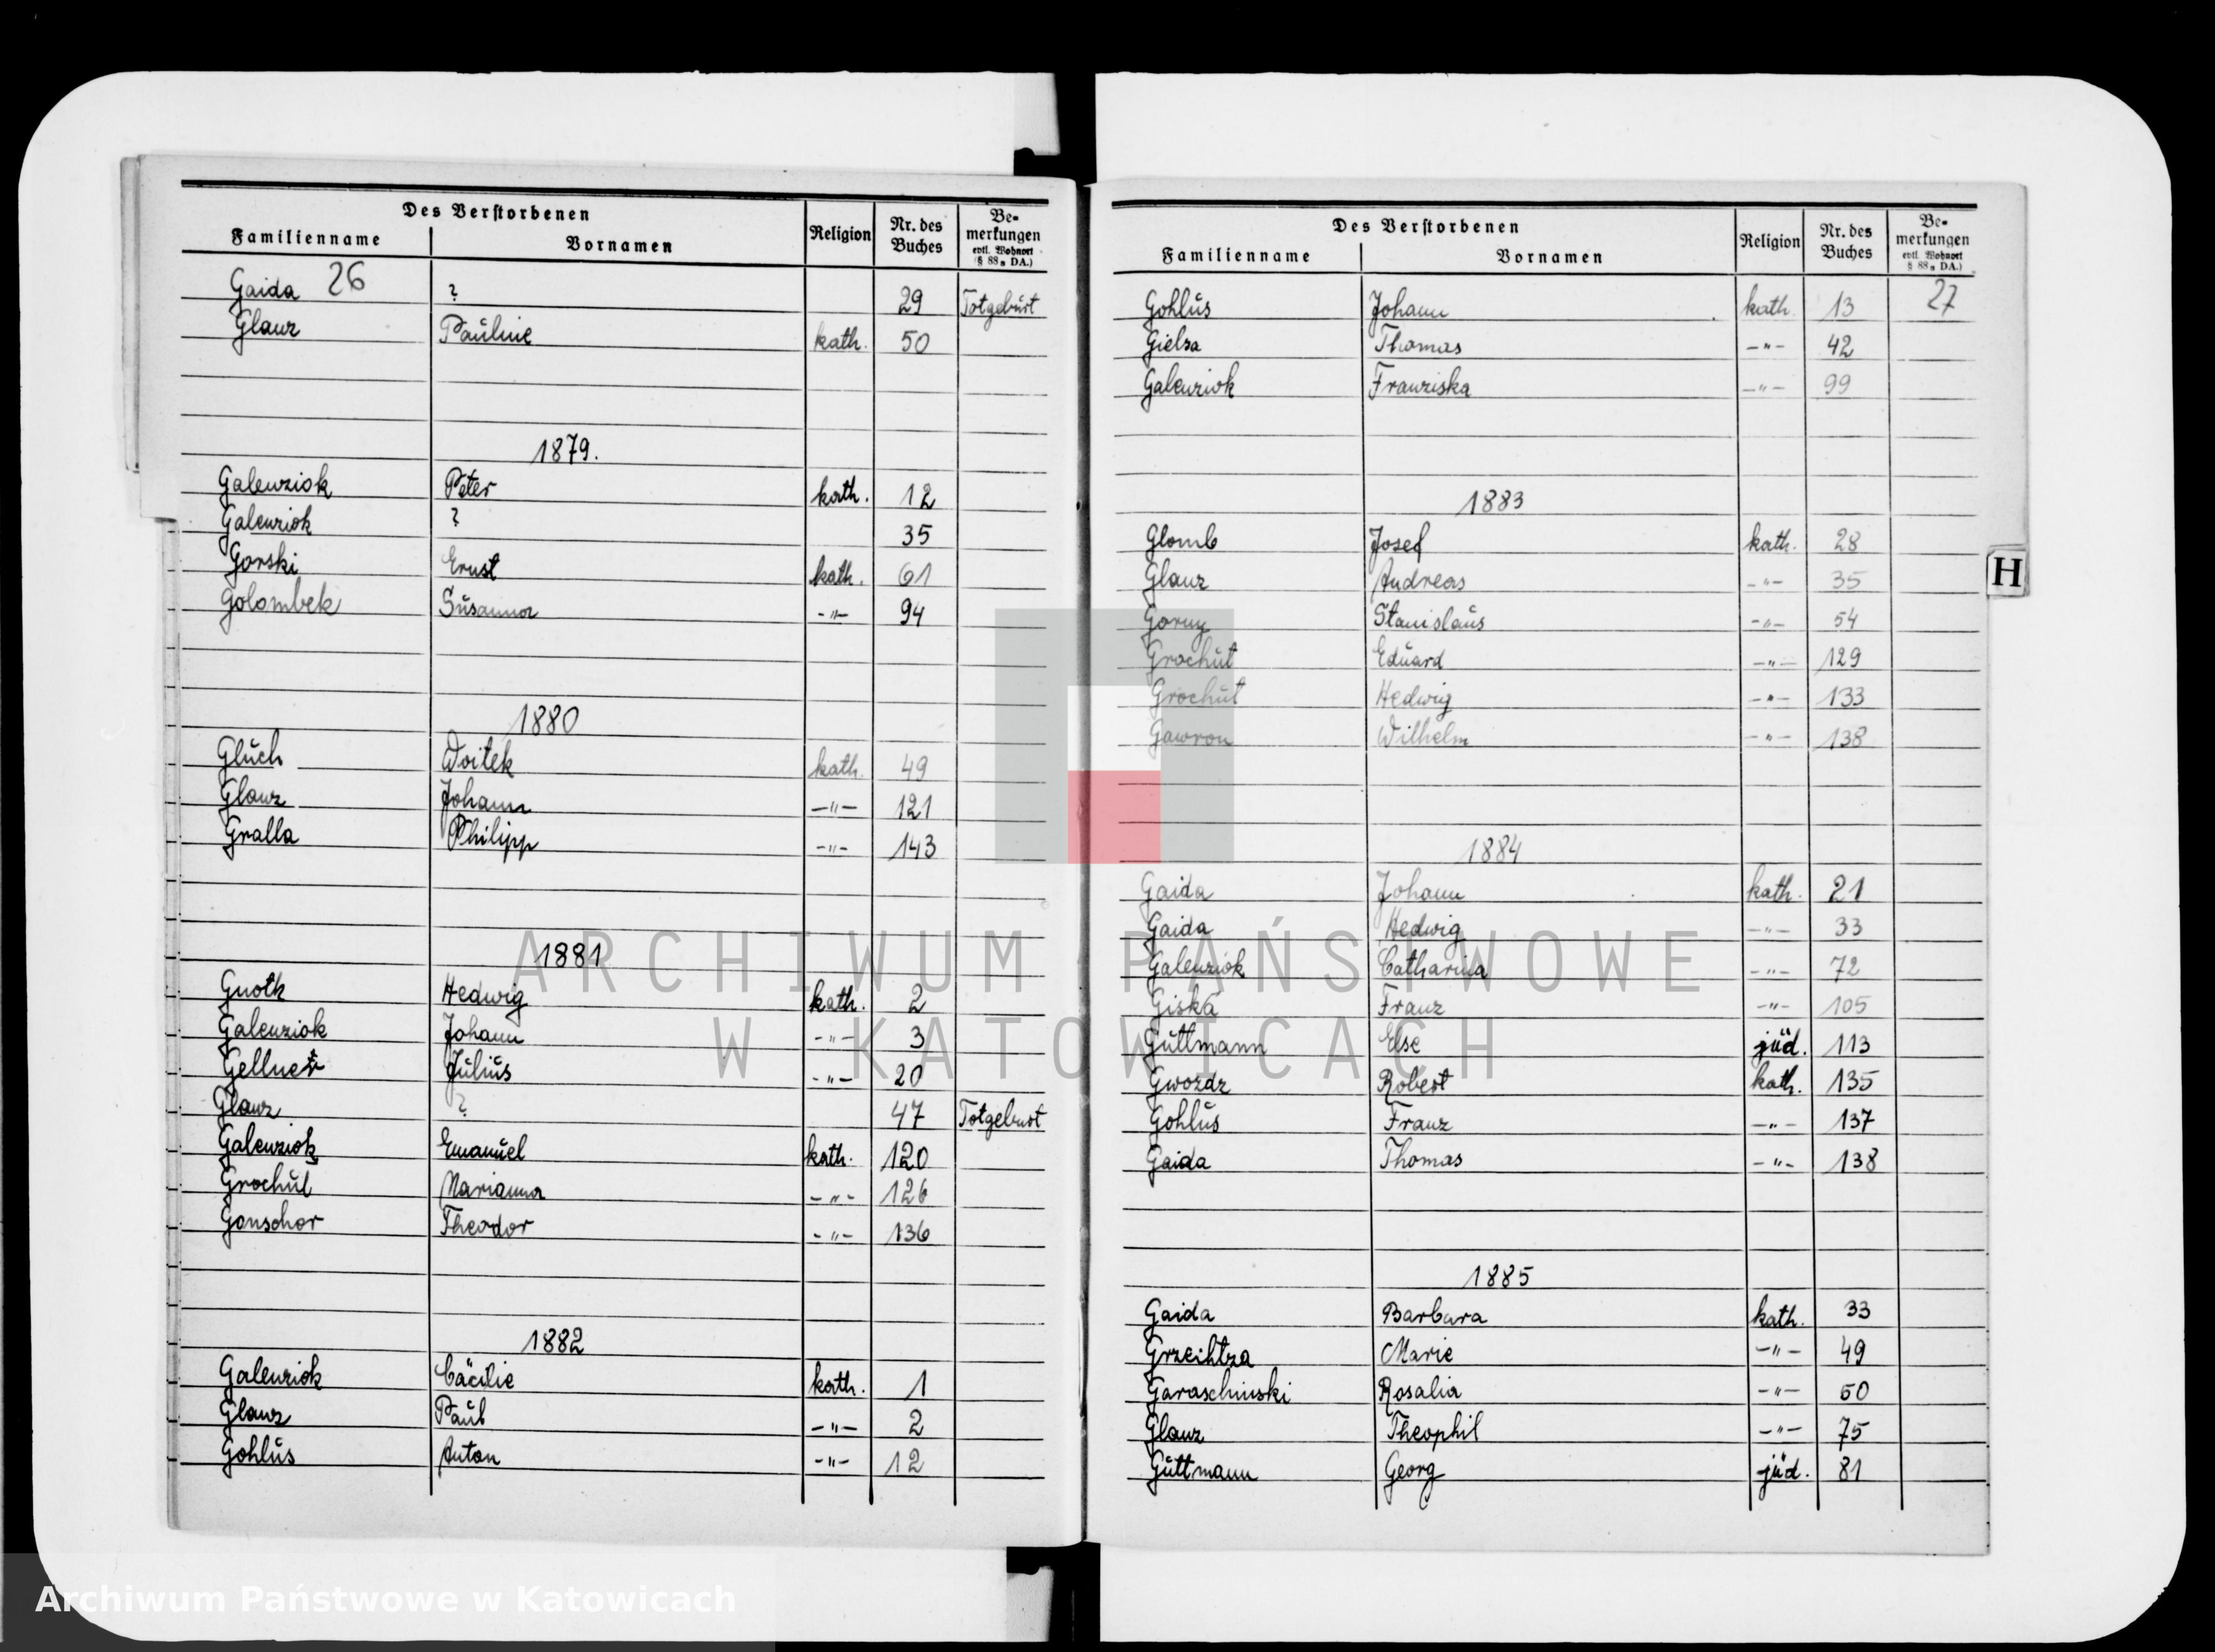 Des Verstorbenen
Familienname Vornamen Religion Nr. des Buches Bemerkungen evtl. Wohnort (§ 88a DA.)
26
Gaida ? 29 Totgeburt
Glanz Pauline kath. 50
1879.
Galenziok Peter kath. 12
Galenziok ? 35
Gorski Ernst kath. 61
Golombek Susanna -"- 94
1880
Gluch Woitek kath. 49
Glanz Johann -"- 121
Gralla Philipp -"- 143
1881
Gnoth Hedwig kath. 2
Galenziok Johann -"- 3
Gellner Julius -"- 20
Glanz ? 47 Totgeburt
Galenziok Emanuel kath. 120
Grochul Marianna -"- 126
Gonschor Theodor -"- 136
1882
Galenziok Cäcilie kath. 1
Glanz Paul -"- 2
Gohlus Anton -"- 12
Des Verstorbenen
Familienname Vornamen Religion Nr. des Buches Bemerkungen evtl. Wohnort § 88a DA.)
27
Gohlus Johann kath. 13
Gielza Thomas -"- 42
Galenziok Franziska -"- 99
1883
Glomb Josef kath. 28
Glanz Andreas -"- 35
Gorny Stanislaus -"- 54
Grochut Eduard -"- 129
Grochut Hedwig -"- 133
Gawron Wilhelm -"- 138
1884
Gaida Johann kath. 21
Gaida Hedwig -"- 33
Galenziok Catharina -"- 72
Giska Franz -"- 105
Guttmann Else jüd. 113
Gwozdz Robert kath. 135
Gohlus Franz -"- 137
Gaida Thomas -"- 138
1885
Gaida Barbara kath. 33
Grzeihtza Marie -"- 49
Garaschinski Rosalia -"- 50
Glanz Theophil -"- 75
Guttmann Georg jüd. 81
H
ARCHIWUM PAŃSTWOWE
W KATOWICACH
Archiwum Państwowe w Katowicach